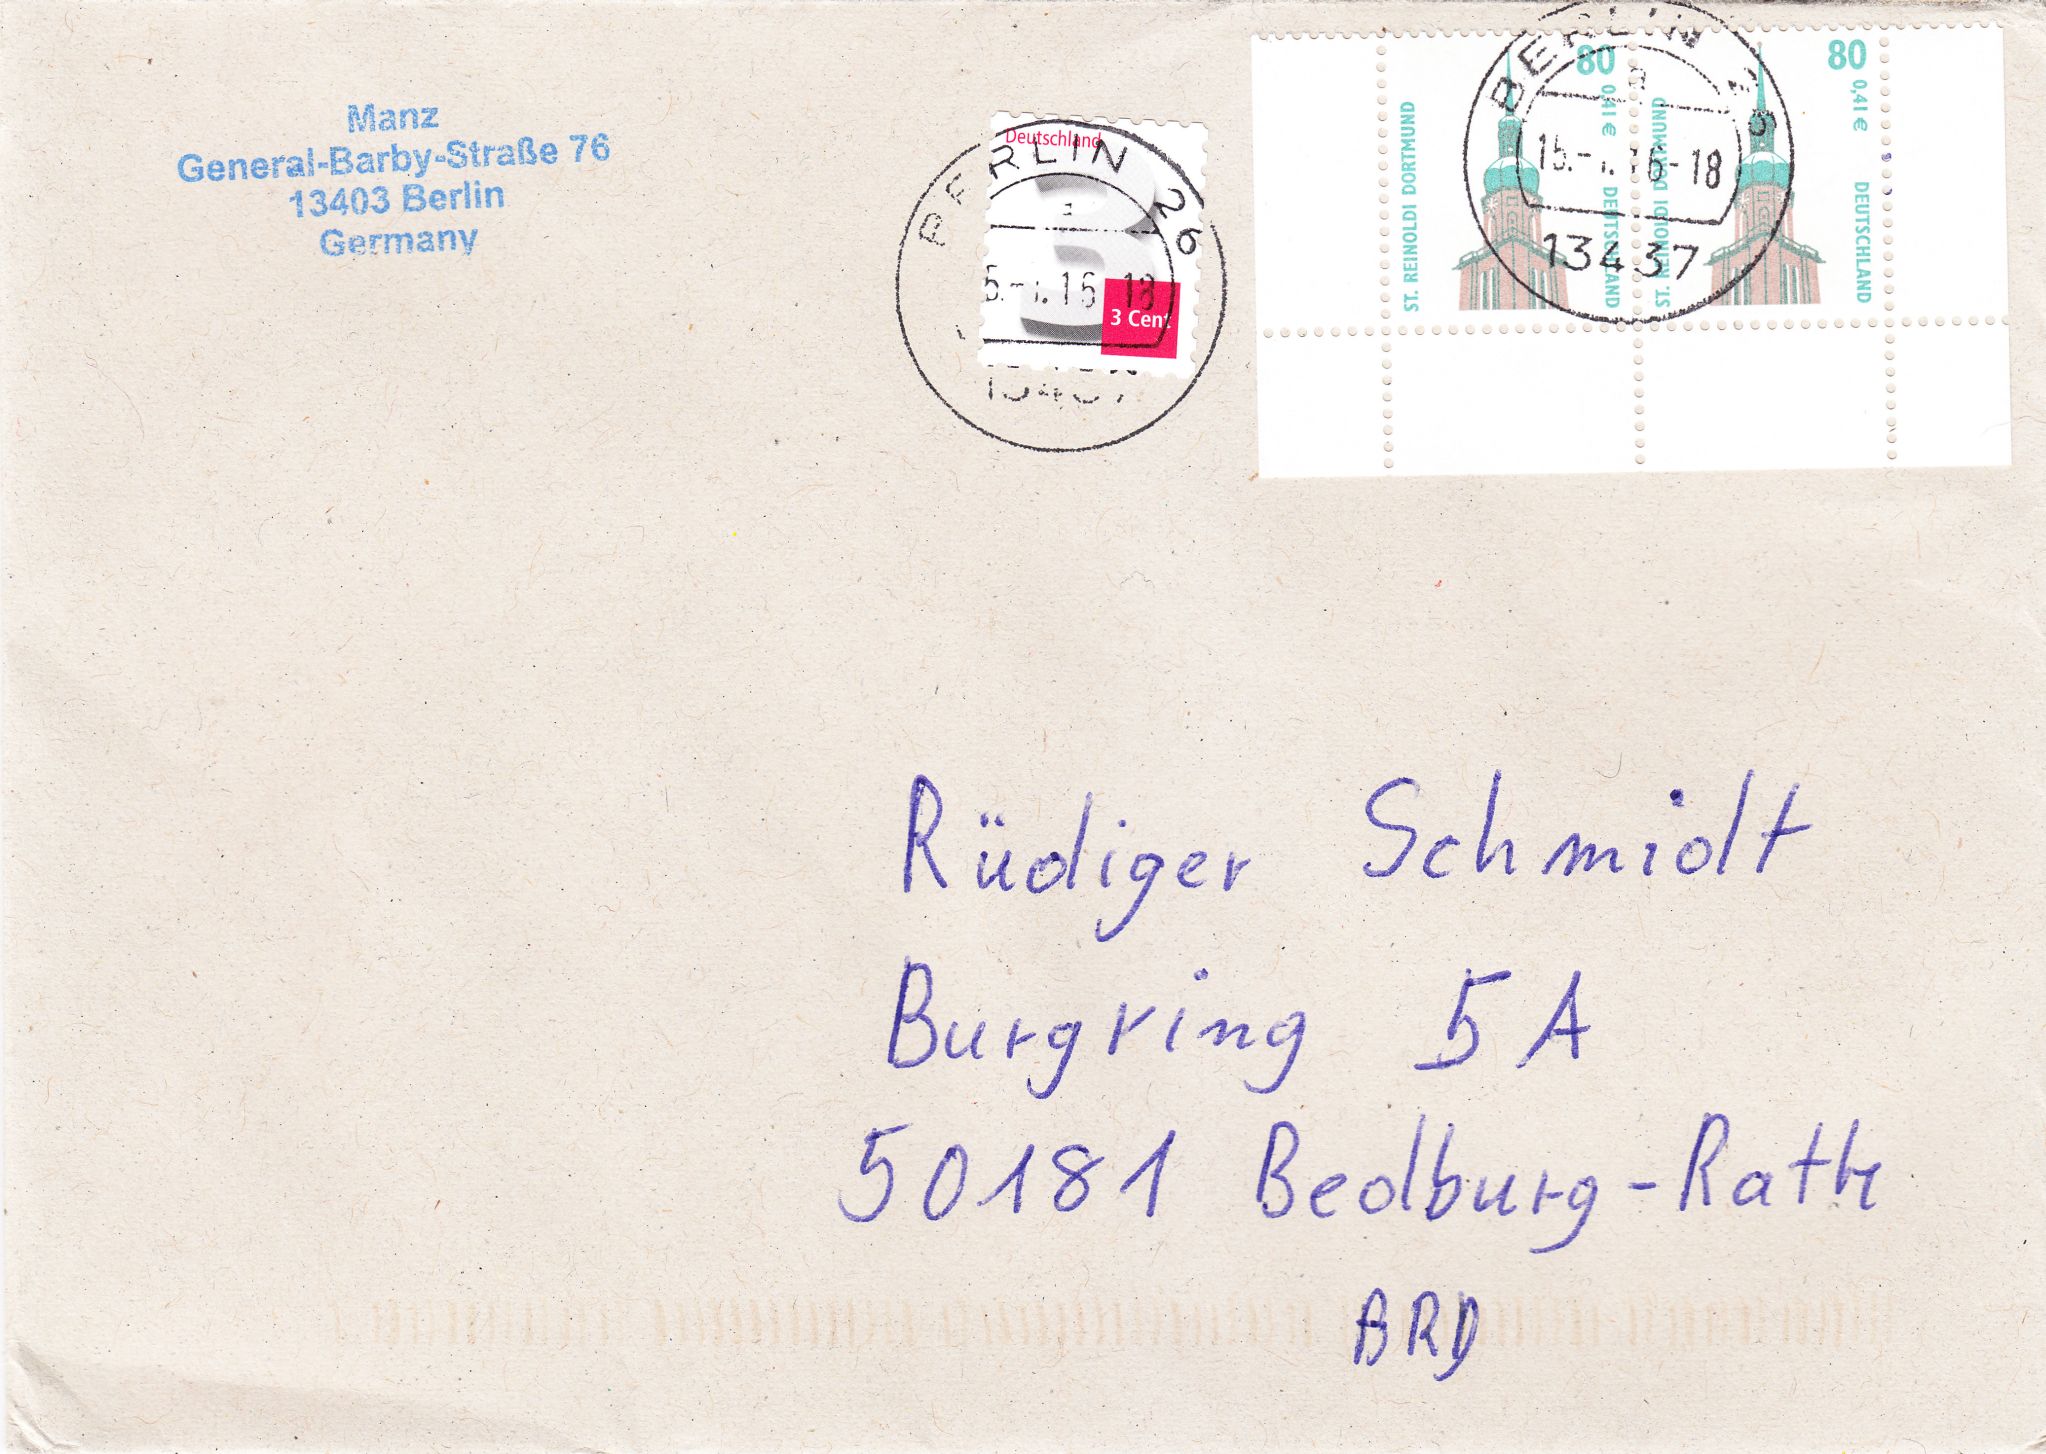 Manz
General-Barby-Straße 76
13403 Berlin
Germany
Deutschland
BERLIN 26
16 18
3 Cent
13437
80
0,41 €
ST. REINOLDI DORTMUND
DEUTSCHLAND
80
0,41 €
ST. REINOLDI DORTMUND
DEUTSCHLAND
BERLIN 26
a
15.- 16-18
13437
Rüdiger Schmidt
Burgring 5A
50181 Bedburg-Rath
BRD